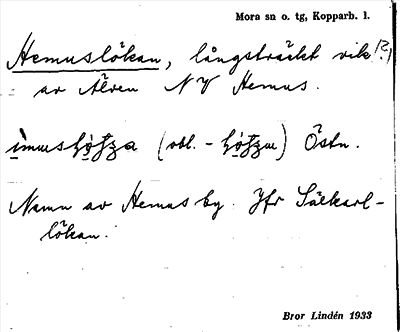 Mora sn o. tg, Kopparb. l.
Hemuslökan, långsträckt vik (?)
av Älven NV Hemus.
(obl. - ) Östn.
Namn av Hemus by. Jfr Säckarl-
lökan.
Bror Lindén 1933